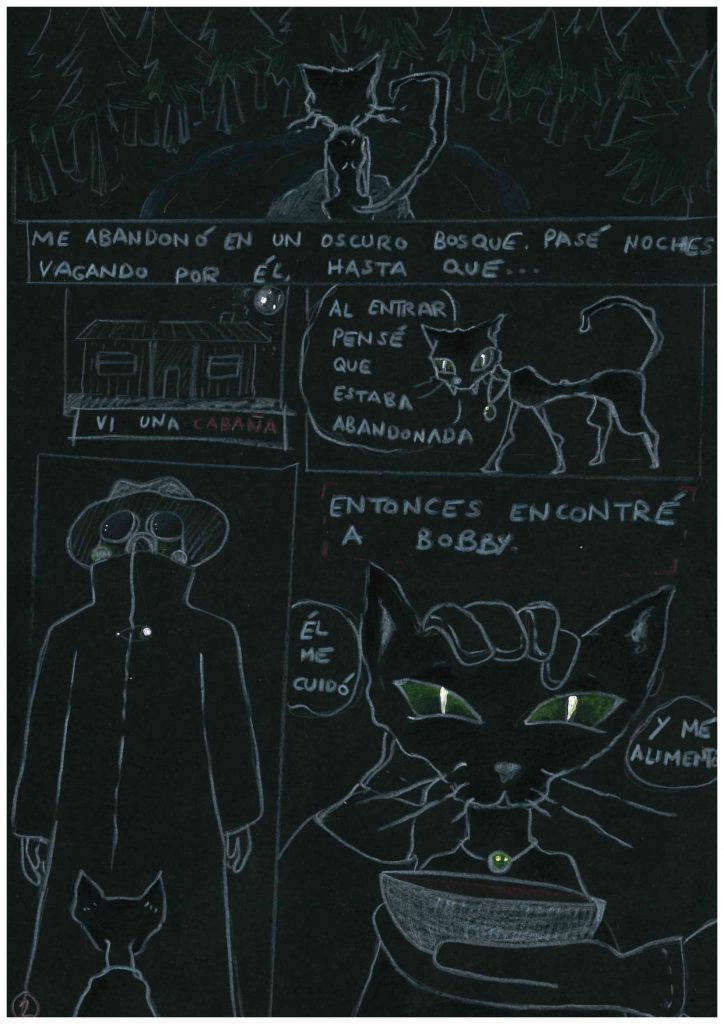 ME ABANDONÓ EN UN OSCURO BOSQUE. PASÉ NOCHES
VAGANDO POR ÉL, HASTA QUE...
VI UNA CABAÑA
AL ENTRAR
PENSÉ
QUE
ESTABA
ABANDONADA
ENTONCES ENCONTRÉ
A BOBBY.
ÉL
ME
CUIDÓ
Y ME
ALIMENTÓ
2